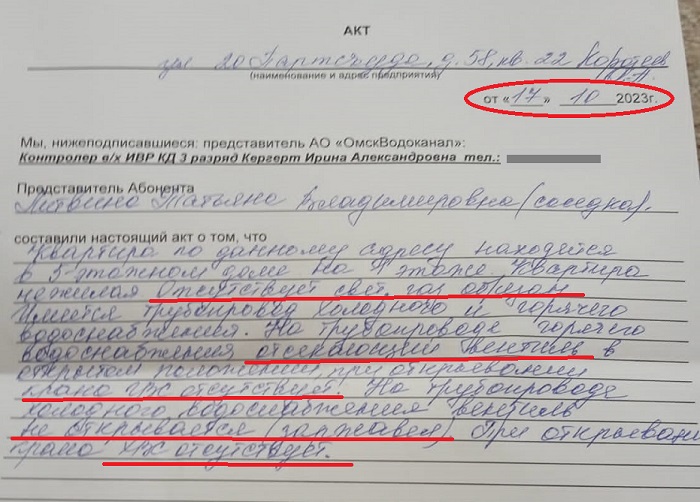 АКТ
ул 20 Партсъезда, д. 58, кв. 22 Коротаев
(наименование и адрес предприятия)
от «17» 10 2023г.
Мы, нижеподписавшиеся: представитель АО «ОмскВодоканал»:
Контролер в/х ИВР КД 3 разряд Кергерт Ирина Александровна тел.:
Представитель Абонента
Татьяна Владимировна (соседка).
составили настоящий акт о том, что
Квартира по данному адресу находятся
в 5-этажном доме на 4 этаже. Квартира
нежилая Отсутствует свет, газ обрезан
Имеется трубопровод холодного и горячего
водоснабжения. На трубопроводе горячего
водоснабжения отсекающий вентиль в
открытом положении при открывании
крана ГВС отсутствует. На трубопроводе
холодного водоснабжения вентиль
не открывается (заржавел). При открывании
крана ХВС отсутствует.